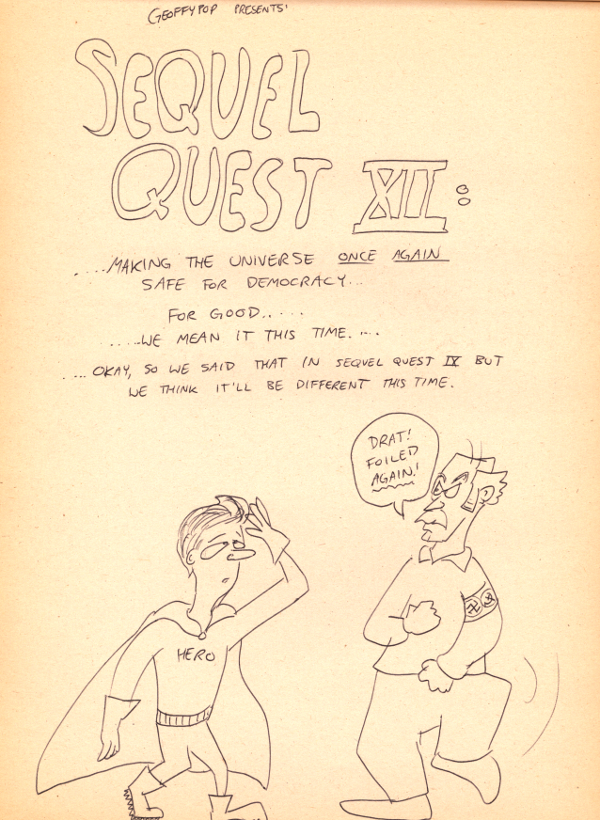 GEOFFYPOP PRESENTS'
SEQUEL
QUEST XII:
....MAKING THE UNIVERSE ONCE AGAIN
SAFE FOR DEMOCRACY...
FOR GOOD.....
.....WE MEAN IT THIS TIME....
....OKAY, SO WE SAID THAT IN SEQUEL QUEST IX BUT
WE THINK IT'LL BE DIFFERENT THIS TIME.
DRAT!
FOILED
AGAIN!
HERO